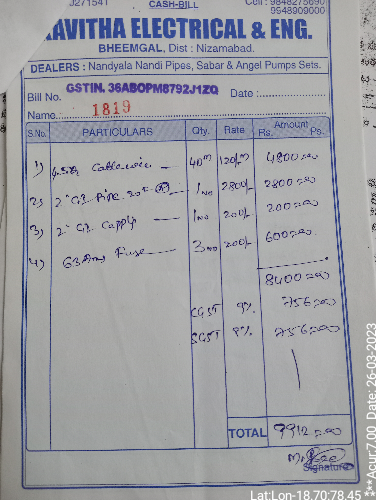 J271541 CASH-BILL Cell : 9848275690
9548909000
KAVITHA ELECTRICAL & ENG.
BHEEMGAL, Dist : Nizamabad.
DEALERS : Nandyala Nandi Pipes, Sabar & Angel Pumps Sets.
GSTIN. 36ABOPM8792J1ZQ
Bill No. Date :
1819
Name
S.No. PARTICULARS Qty. Rate Amount
Rs. Ps.
1) 40m 120/m 4800=00
2) 2" GI Pipe 20ft 1No 2800/- 2800=00
3) 2" GI 1No 200/- 200=00
4) 63 Amp Fuse 3No 200/- 600=00
8400=00
CGST 9% 756=00
SGST 9% 756=00
TOTAL 9912=00
Signature
Lat:Lon-18.70:78.45
***Acur:7.00 Date: 26-03-2023